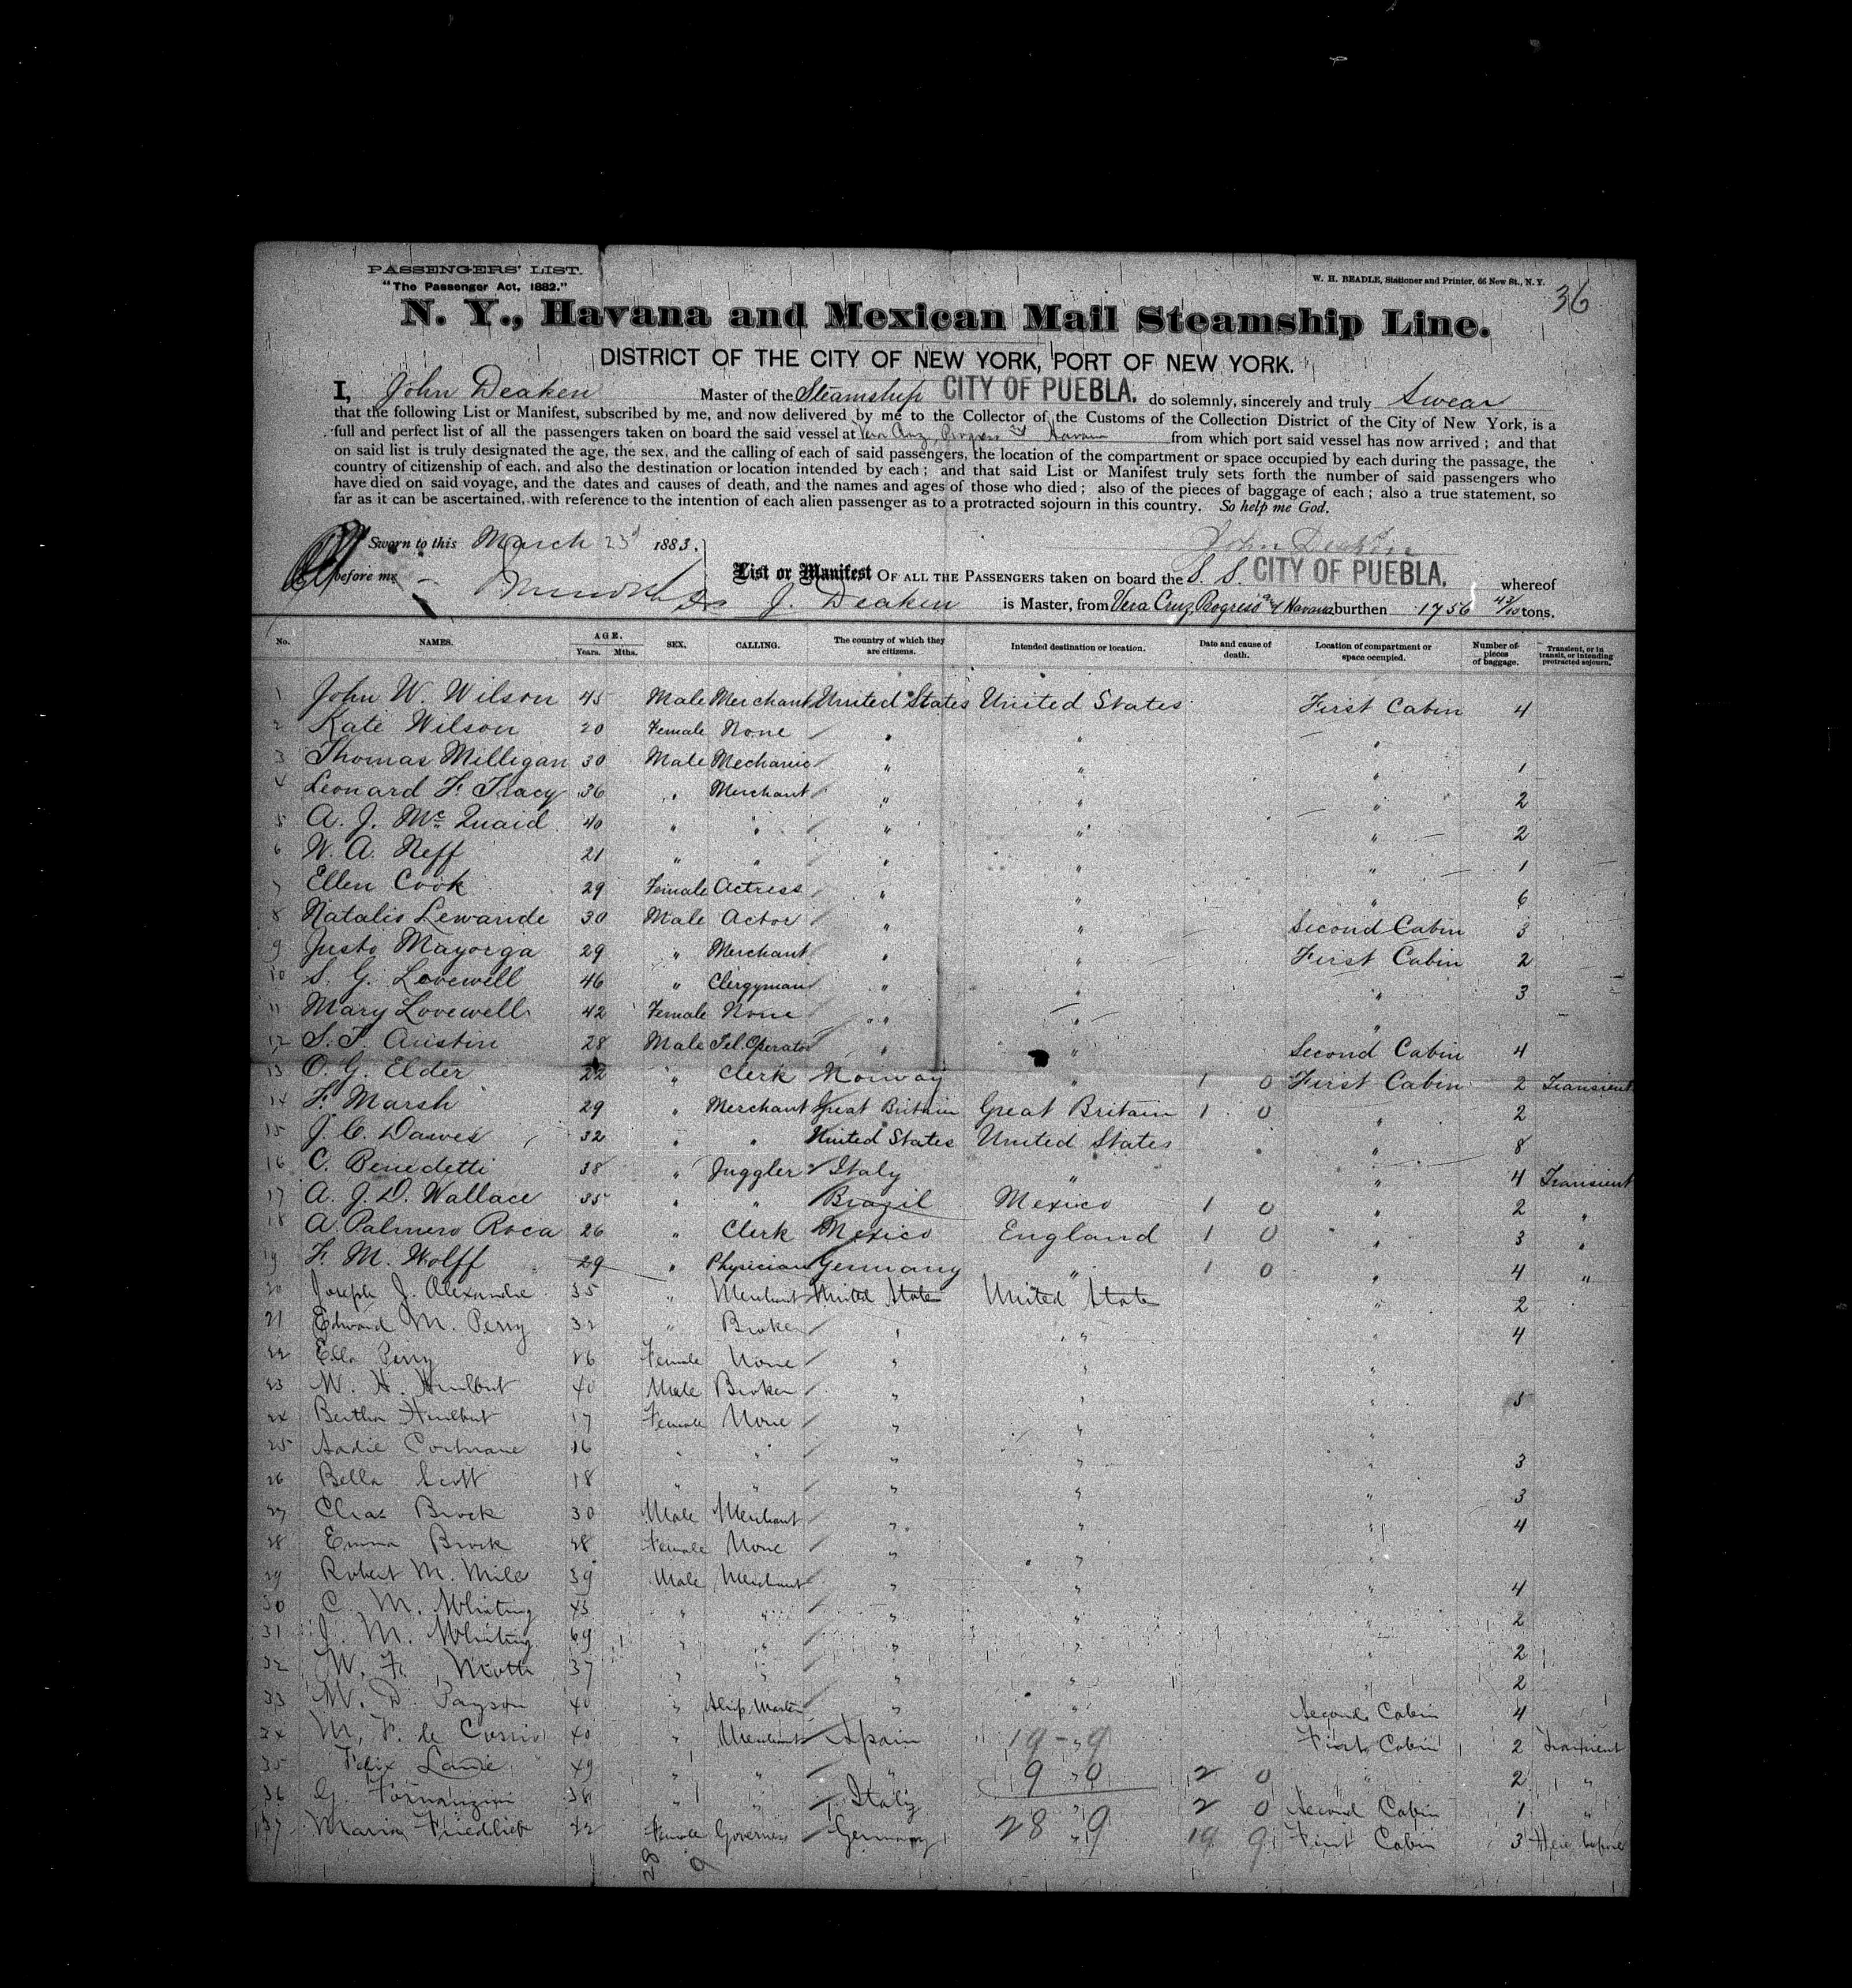 PASSENGERS' LIST.
"The Passenger Act, 1882."
W. H. BEADLE, Stationer and Printer, 66 New St., N. Y.
36
N. Y., Havana and Mexican Mail Steamship Line.
DISTRICT OF THE CITY OF NEW YORK, PORT OF NEW YORK.
I, John Deaken Master of the Steamship CITY OF PUEBLA. do solemnly, sincerely and truly Swear
that the following List or Manifest, subscribed by me, and now delivered by me to the Collector of the Customs of the Collection District of the City of New York, is a
full and perfect list of all the passengers taken on board the said vessel at Vera Cruz, Progreso and Havana from which port said vessel has now arrived; and that
on said list is truly designated the age, the sex, and the calling of each of said passengers, the location of the compartment or space occupied by each during the passage, the
country of citizenship of each, and also the destination or location intended by each; and that said List or Manifest truly sets forth the number of said passengers who
have died on said voyage, and the dates and causes of death, and the names and ages of those who died; also of the pieces of baggage of each; also a true statement, so
far as it can be ascertained, with reference to the intention of each alien passenger as to a protracted sojourn in this country. So help me God.
John Deaken
Sworn to this March 23d 1883.
before me
List or Manifest OF ALL THE PASSENGERS taken on board the S. S. CITY OF PUEBLA. whereof
J. Deaken is Master, from Vera Cruz, Progreso and Havana burthen 1756 43/100 tons.
No. NAMES. AGE. Years. Mths. SEX. CALLING. The country of which they are citizens. Intended destination or location. Date and cause of death. Location of compartment or space occupied. Number of pieces of baggage. Transient, or in transit, or intending protracted sojourn.
1 John W. Wilson 45 Male Merchant United States United States First Cabin 4
2 Kate Wilson 20 Female None " " "
3 Thomas Milligan 30 Male Mechanic " " " 1
4 Leonard F. Tracy 36 " Merchant " " " 2
5 A. J. McQuaid 40 " " " " " 2
6 W. A. Neff 21 " " " " " 1
7 Ellen Cook 29 Female Actress " " " 6
8 Natalis Lewande 30 Male Actor " " Second Cabin 3
9 Justo Mayorga 29 " Merchant " " First Cabin 2
10 S. G. Lovewell 46 " Clergyman " " " 3
11 Mary Lovewell 42 Female None " " "
12 S. F. Austin 28 Male Tel. Operator " " Second Cabin 4
13 O. G. Elder 22 " Clerk Norway " 1 0 First Cabin 2 Transient
14 F. Marsh 29 " Merchant Great Britain Great Britain 1 0 " 2
15 J. C. Dawes 32 " " United States United States " 8
16 C. Benedetti 38 " Juggler Italy " " 4 Transient
17 A. J. D. Wallace 35 " " Brazil Mexico 1 0 " 2 "
18 A. Palmero Roca 26 " Clerk Mexico England 1 0 " 3 "
19 F. M. Wolff 29 " Physician Germany " 1 0 " 4 "
20 Joseph J. Alexandre 35 " Merchant United State United State " 2
21 Edward M. Perry 32 " Broker " " " 4
22 Ella Perry 26 Female None " " "
23 W. H. Hurlbut 40 Male Broker " " " 5
24 Bertha Hurlbut 17 Female None " " "
25 Sadie Cochrane 16 " " " " " 3
26 Bella Scott 18 " " " " " 3
27 Chas Brock 30 Male Merchant " " " 4
28 Emma Brock 28 Female None " " "
29 Robert M. Mills 39 Male Merchant " " " 4
30 C. M. Whiting 45 " " " " " 2
31 J. M. Whiting 69 " " " " " 2
32 W. F. 37 " " " " " 2
33 W. D. Payson 40 " Ship Master " " Second Cabin 4
34 M. F. de 40 " Merchant Spain 19 - 9 First Cabin 2 Transient
35 Felix 49 " " " 9 0 2 0 " 2 "
36 G. 38 " " Italy " 2 0 Second Cabin 1 "
37 Maria Friedlieb 42 Female Governess Germany 28 9 19 9 First Cabin 3 Here before
28 9